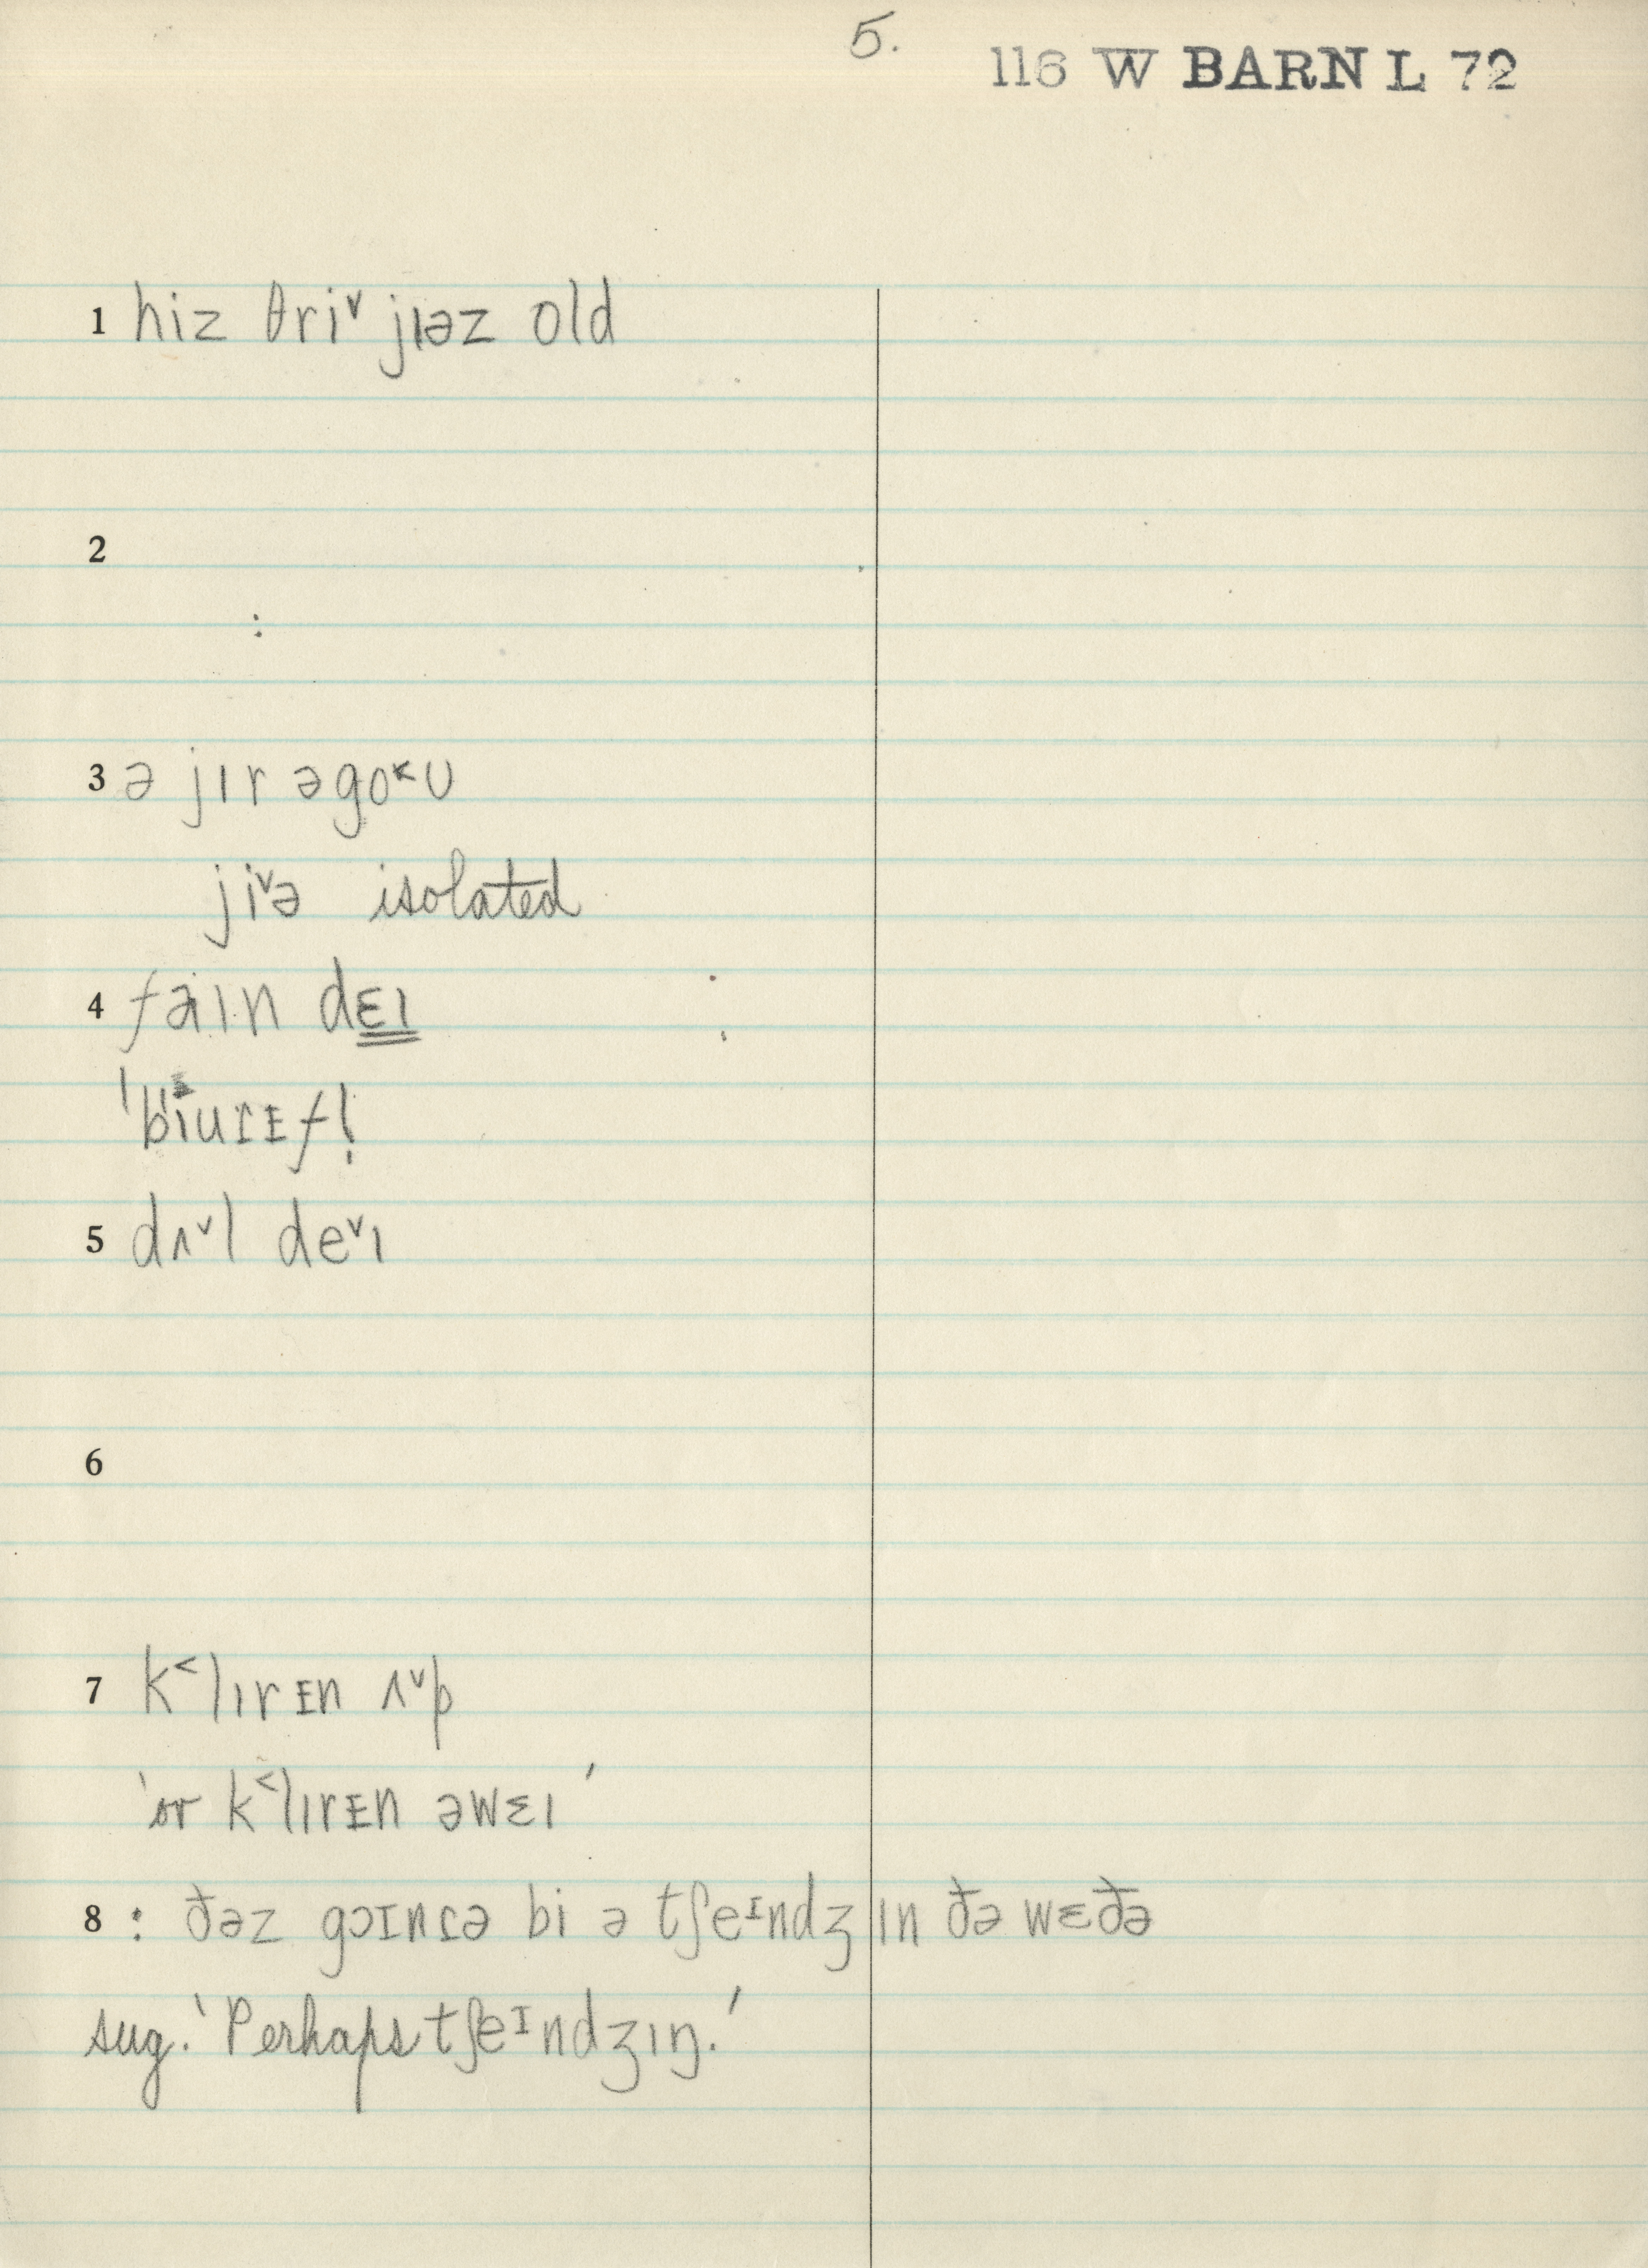 5.
116 W BARN L 72
1 hiz θriˇ jɪəz old
2
3 ə jɪr əgo˂ʊ
jiˇə isolated
4 faɪn dɛɪ
ˈbiuɾɪfl̩
5 dʌˇl deˇɪ
6
7 k˂lɪrɪn ʌˇp
'or k˂lɪrɪn əwɛɪ'
8 : ðəz gɔɪnɾə bi ə tʃeᶦndʒ ɪn ðə wɛðə
sug. 'Perhaps tʃeᶦndʒɪŋ.'